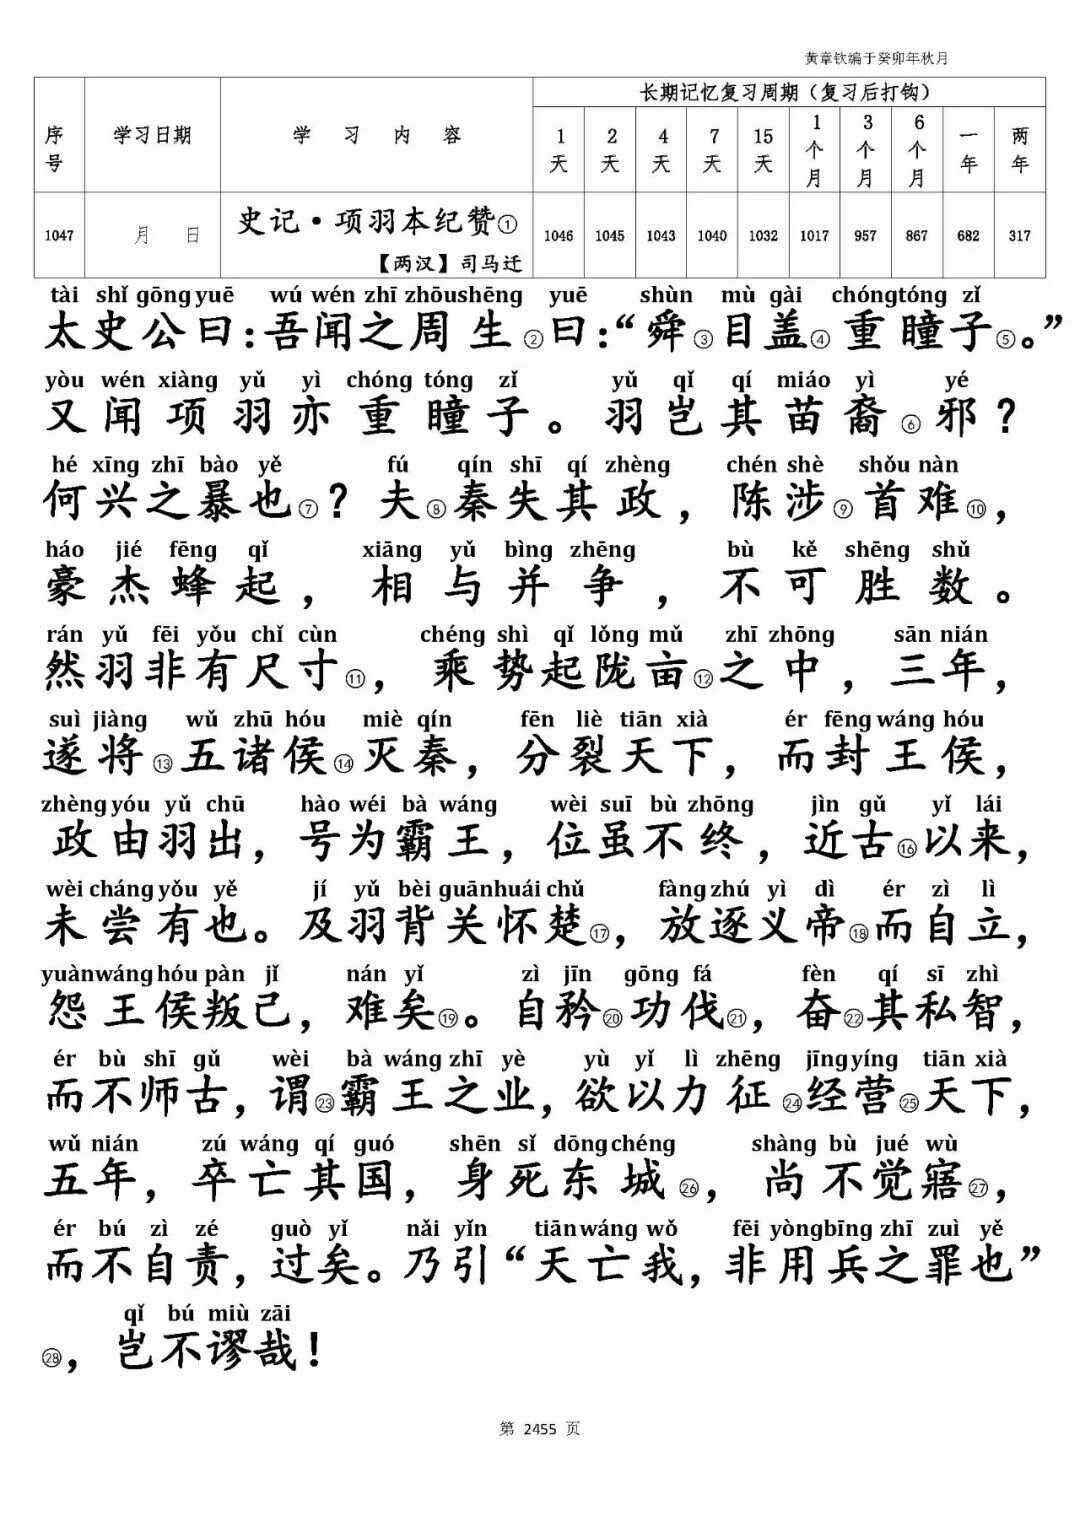 黄章钦编于癸卯年秋月
序号 学习日期 学 习 内 容 长期记忆复习周期（复习后打钩）
1天 2天 4天 7天 15天 1个月 3个月 6个月 一年 两年
1047 月 日 史记·项羽本纪赞① 1046 1045 1043 1040 1032 1017 957 867 682 317
【两汉】司马迁
tài shǐ gōng yuē wú wén zhī zhōu shēng yuē shùn mù gài chóng tóng zǐ
太史公曰：吾闻之周生②曰：“舜③目盖④重瞳子⑤。”
yòu wén xiàng yǔ yì chóng tóng zǐ yǔ qǐ qí miáo yì yé
又闻项羽亦重瞳子。羽岂其苗裔⑥邪？
hé xīng zhī bào yě fú qín shī qí zhèng chén shè shǒu nàn
何兴之暴也⑦？夫⑧秦失其政，陈涉⑨首难⑩，
háo jié fēng qǐ xiāng yǔ bìng zhēng bù kě shēng shǔ
豪杰蜂起，相与并争，不可胜数。
rán yǔ fēi yǒu chǐ cùn chéng shì qǐ lǒng mǔ zhī zhōng sān nián
然羽非有尺寸⑪，乘势起陇亩⑫之中，三年，
suì jiàng wǔ zhū hóu miè qín fēn liè tiān xià ér fēng wáng hóu
遂将⑬五诸侯⑭灭秦，分裂天下，而封王侯，
zhèng yóu yǔ chū hào wéi bà wáng wèi suī bù zhōng jìn gǔ yǐ lái
政由羽出，号为霸王，位虽不终，近古⑯以来，
wèi cháng yǒu yě jí yǔ bèi guān huái chǔ fàng zhú yì dì ér zì lì
未尝有也。及羽背关怀楚⑰，放逐义帝⑱而自立，
yuàn wáng hóu pàn jǐ nán yǐ zì jīn gōng fá fèn qí sī zhì
怨王侯叛己，难矣⑲。自矜⑳功伐㉑，奋㉒其私智，
ér bù shī gǔ wèi bà wáng zhī yè yù yǐ lì zhēng jīng yíng tiān xià
而不师古，谓㉓霸王之业，欲以力征㉔经营㉕天下，
wǔ nián zú wáng qí guó shēn sǐ dōng chéng shàng bù jué wù
五年，卒亡其国，身死东城㉖，尚不觉寤㉗，
ér bú zì zé guò yǐ nǎi yǐn tiān wáng wǒ fēi yòng bīng zhī zuì yě
而不自责，过矣。乃引“天亡我，非用兵之罪也”
qǐ bú miù zāi
㉘，岂不谬哉！
第 2455 页